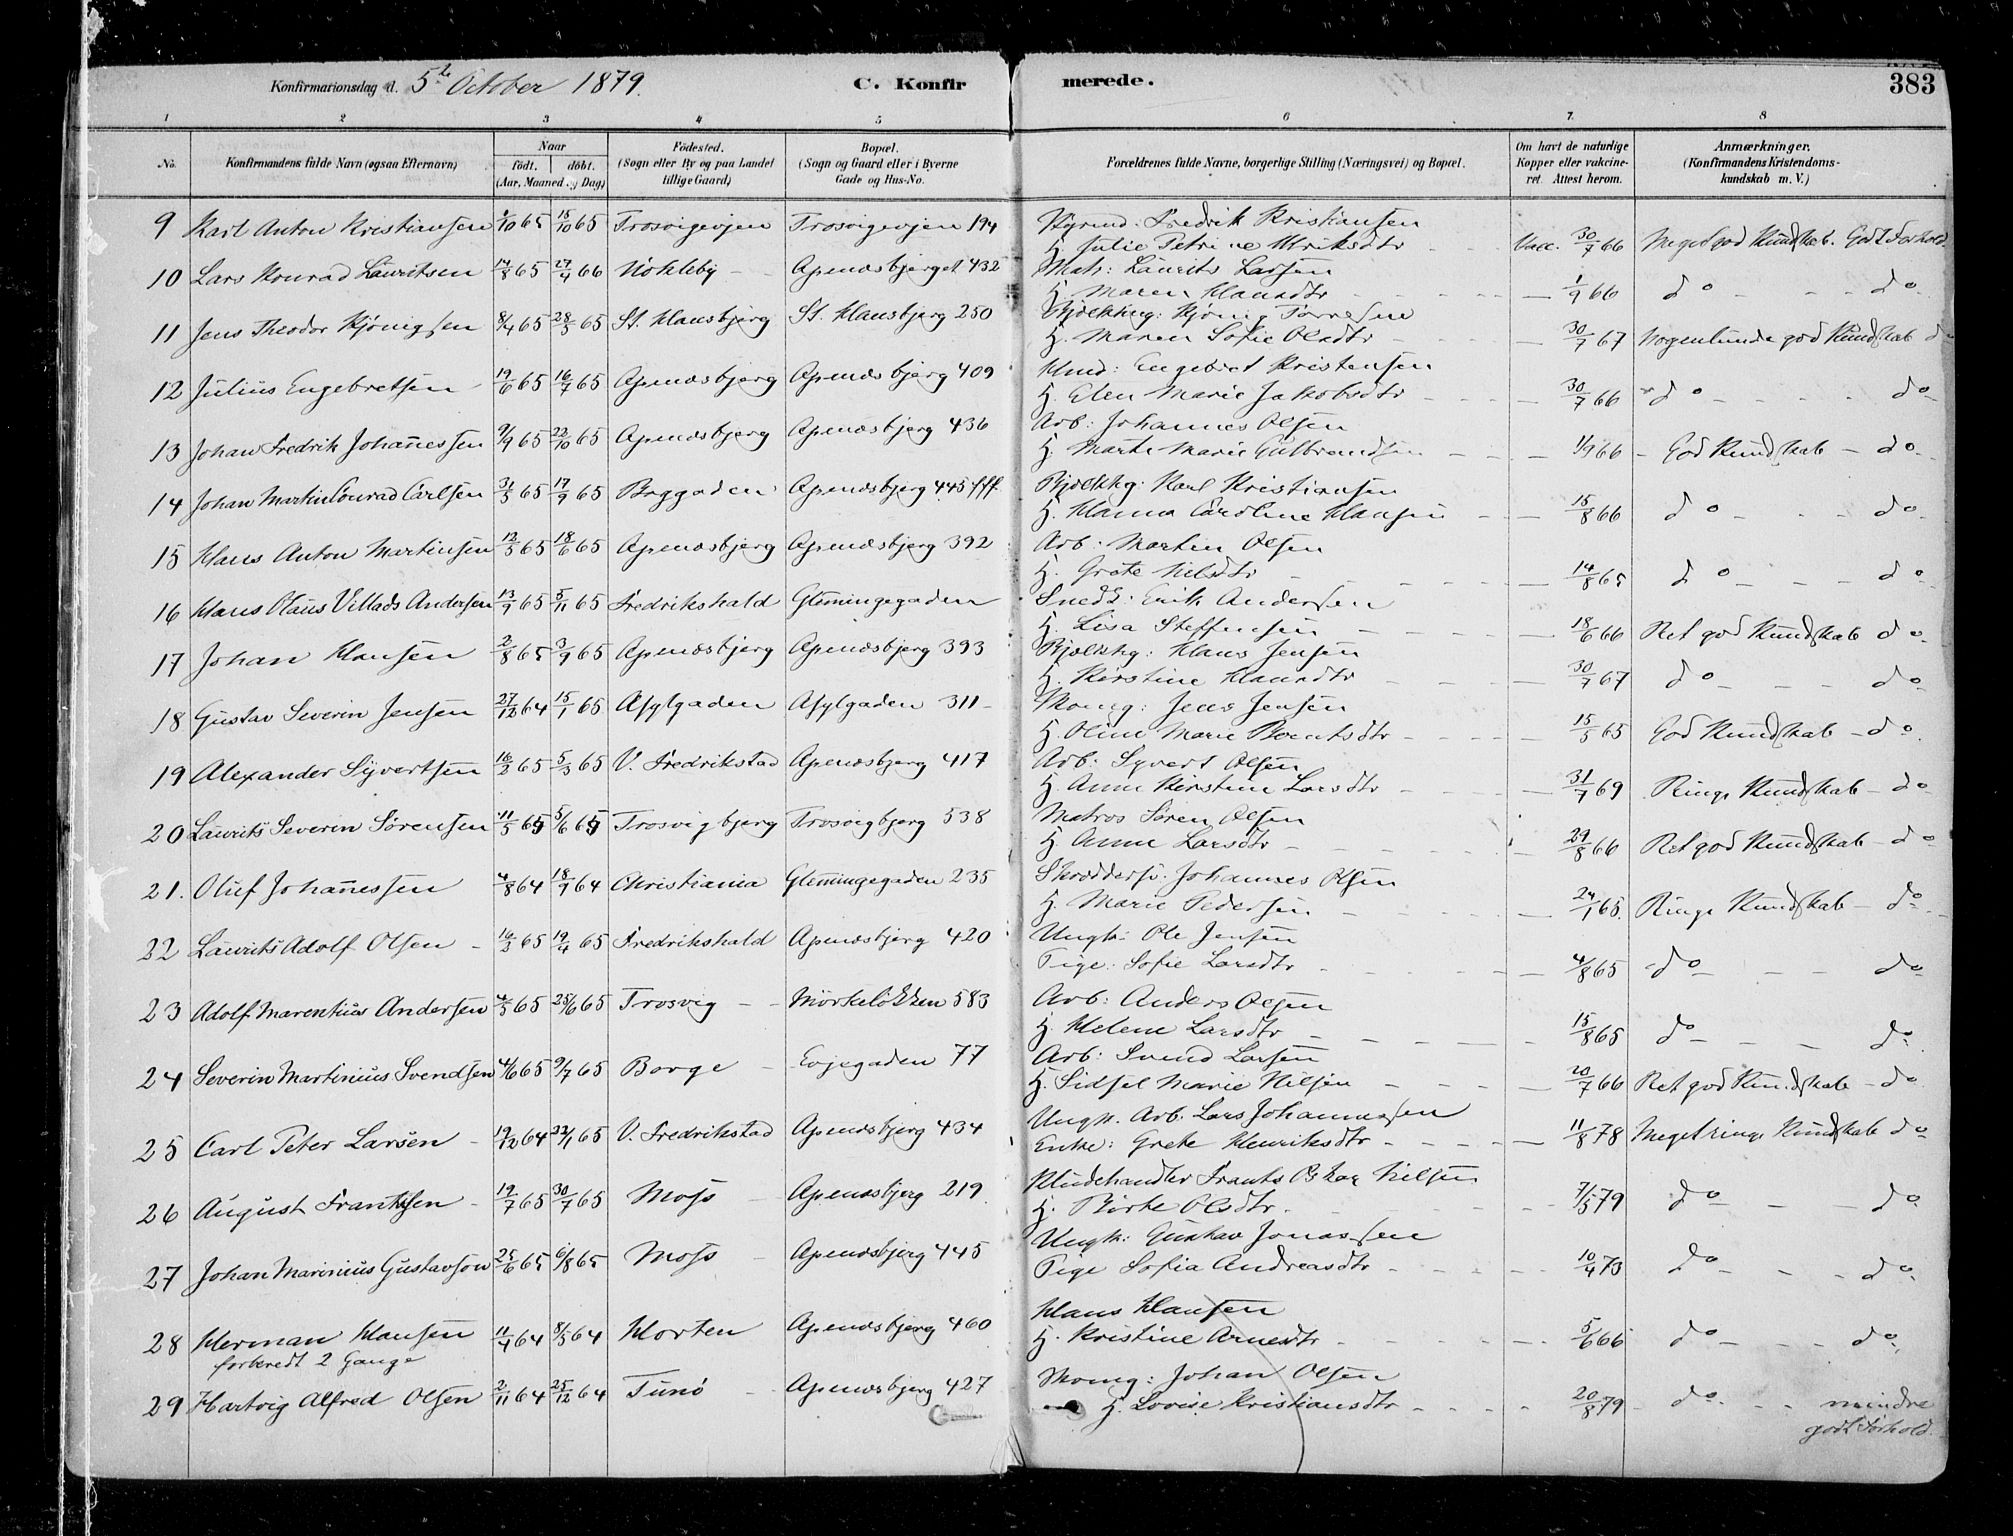 Konfirmationsdag d. 5te October 1879.
C. Konfirmerede.
383
1 2 3 4 5 6 7. 8
No. Konfirmandens fulde Navn (ogsaa Efternavn) Naar födt. döbt. (Aar, Maaned og Dag) Födested. (Sogn eller By og paa Landet tillige Gaard) Bopæl. (Sogn og Gaard eller i Byerne Gade og Hus-No. Forældrenes fulde Navne, borgerlige Stilling (Næringsvei) og Bopæl. Om havt de naturlige Kopper eller vakcineret. Attest herom. Anmærkninger. (Konfirmandens Kristendomskundskab m. V.)
9 Karl Anton Kristiansen /10 65 15/10 65 Trosvigevjen Trosvigevjen 194 Styrmd. Fredrik Kristiansen
H. Julie Petrine Ulriksdtr Vacc. 30/7 66 Meget god Kundskab. Godt Forhold
10 Lars Konrad Lauritsen 14/8 65 27/4 66 Nökleby Apenæsbjerget 432 Matr: Laurits Larsen
H. Maren Hansdtr 1/9 66 do do
11 Jens Theodor Kjönigsen 8/4 65 28/5 65 St. Hansbjerg St. Hansbjerg 250 Bjælkhg: Kjönig Tørresen
H. Maren Sofie Olsdtr 30/7 67 Nogenlunde god Kundskab do
12 Julius Engebretsen 19/6 65 16/7 65 Apenæsbjerg Apenæsbjerg 409 Hmd: Engebret Kristensen
H. Elen Marie Jakobsdtr 30/7 66 do do
13 Johan Fredrik Johannessen 9/9 65 22/10 65 Apenæsbjerg Apenæsbjerg 436 Arb: Johannes Olsen
H. Marte Marie Gulbrandsen 1/9 66 God Kundskab do
14 Johan Martin Conrad Carlsen 31/5 65 17/9 65 Byggaden Apenæsbjerg 445 fff. Bjælkhg: Karl Kristiansen
H. Hanna Caroline Hansen 15/8 66 do do
15 Hans Anton Martinsen 12/5 65 18/6 65 Apenæsbjerg Apenæsbjerg 392 Arb: Martin Olsen
H. Grete Nilsdtr 14/8 65 do do
16 Hans Olaus Villads Andersen 13/9 65 5/11 65 Fredrikshald Glemmingegaden Snedk: Erik Andersen
H. Lisa Steffensen 18/6 66 Ret god Kundskab do
17 Johan Hansen 2/8 65 3/9 65 Apenæsbjerg Apenæsbjerg 393 Bjælkhg: Hans Jensen
H. Kirstine Hansdtr 30/7 67 do do
18 Gustav Severin Jensen 27/12 64 15/1 65 Asylgaden Asylgaden 311 Skomg: Jens Jensen
H. Oline Marie Berntsdtr 15/5 65 God Kundskab do
19 Alexander Syvertsen 16/2 65 5/3 65 V. Fredrikstad Apenæsbjerg 417 Arb: Syvert Olsen
H. Anne Kirstine Larsdtr 31/7 69 Ringe Kundskab do
20 Laurits Severin Sörensen 11/5 65 5/6 65 Trosvigbjerg Trosvigbjerg 538 Matros Sören Olsen
H. Anne Larsdtr 29/8 66 Ret god Kundskab do
21. Oluf Johannessen 4/8 64 18/9 64 Christiania Glemmingegaden 235 Skræddersv. Johannes Olsen
H. Marie Pedersen 24/1 65. Ringe Kundskab do
22 Laurits Adolf Olsen 16/3 65 19/4 65 Fredrikshald Apenæsbjerg 420 Ungk: Ole Jensen
Pige: Sofie Larsdtr 4/8 65 do do
23 Adolf Marentius Andersen 4/5 65 25/6 65 Trosvig Mörkelökken 583 Arb: Anders Olsen
H. Helene Larsdtr 15/8 65 do do
24 Severin Martinius Svendsen 4/6 65 9/7 65 Borge Evjegaden 77 Arb: Svend Larsen
H. Sidsel Marie Nilsen 20/7 66 Ret god Kundskab do
25 Carl Peter Larsen 19/12 64 22/1 65 V. Fredrikstad Apenæsbjerg 434 Ungk. Arb. Lars Johannessen
Enke: Grete Henriksdtr 11/8 78 Meget ringe Kundskab do
26 August Frantssen 19/7 65 30/7 65 Moss Apenæsbjerg 219 Kludehandler Frants Oskar Nilsen
H. Birte Olsdtr 7/5 79 do do
27 Johan Marinius Gustavson 25/6 65 6/8 65 Moss Apenæsbjerg 445 Ungk: Gustav Jonassen
Pige Sofia Andreasdtr 10/4 73 do do
28 Herman Hansen 11/4 64 8/5 64 Horten Apenæsbjerg 460 Hans Hansen
forberedt 2 Gange H. Kristine Arnesdtr 5/6 66 do do
29 Hartvig Alfred Olsen 2/11 64 25/12 64 Tunö Apenæsbjerg 427 Skomg: Johan Olsen
H. Lovise Kristiansdtr 20/8 79 do mindre
godt Forhold.